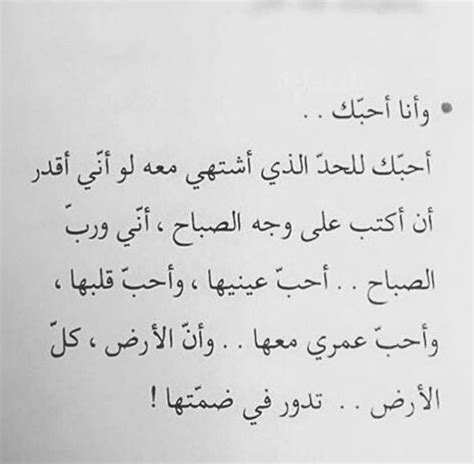 • وأنا أحبّك . .
أحبّك للحدّ الذي أشتهي معه لو أنّي أقدر
أن أكتب على وجه الصباح ، أنّي وربّ
الصباح . . أحبّ عينيها ، وأحبّ قلبها ،
وأحبّ عمري معها . . وأنّ الأرض ، كلّ
الأرض . . تدور في ضمّتها !